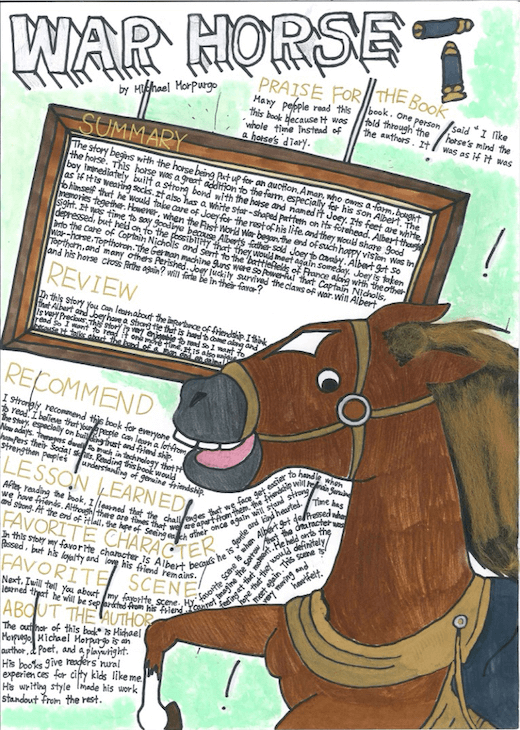 WAR HORSE
by Michael Morpurgo
PRAISE FOR THE BOOK
Many people read this book. One person said " I like
this book because it was told through the horse's mind the
whole time instead of the authors. It was as if it was
a horse's diary.
SUMMARY
The story begins with the horse being put up for an auction. A man, who owns a farm, bought
the horse. This horse was a great addition to the farm, especially for his son Albert. The
boy immediately built a strong bond with the horse and named it Joey. Its feet are white
as if it is wearing socks. It also has a white star-shaped pattern on its forehead. Albert thought
to himself that he would take care of Joey for the rest of his life, and they would share good
memories together. However, when the First World War began, the end of such happy vision was in
sight. It was time to say goodbye because Albert's father sold Joey to cavalry. Albert got so
depressed, but held on to the possibility that they would meet again someday. Joey is taken
into the care of Captain Nicholls and sent to the battlefields of France along with the other
war-horse, Topthorn. The German machine guns were so powerful that Captain Nicholls,
Topthorn, and many others perished. Joey luckily survived the claws of war. Will Albert
and his horse cross paths again? will fate be in their favor?
REVIEW
In this story you can learn about the importance of friendship. I think
that Albert and Joey have a strong tie that is hard to come along and
is very precious. This story is very enjoyable to read so I want to
read so I want to read it one more time. It is also unique
because it talks about the bond of a man and an animal
RECOMMEND
I strongly recommend this book for everyone
to read. I believe that young people can learn a lot from
the story, especially on building trust and friendship.
Nowadays, teenagers dwell so much in technology that it
hampers their social skills. Reading this book would
strengthen people's understanding of genuine friendship.
LESSON LEARNED
After reading the book, I learned that the challenges that we face get easier to handle when
we have friends. Although there are times that we are apart from them, the friendship will remain genuine
and strong. At the end of it all, the hope of seeing each other once again will stand strong.
FAVORITE CHARACTER
In this story my favorite character is Albert because he is gentle and kind hearted. Time has
passed, but his loyalty and love his friend remains.
FAVORITE SCENE
Next, I will tell you about my favorite scene. My favorite scene is when Albert got depressed when
learned that he will be separated from his friend. I cannot imagine the sorrow that the character was
feeling at that moment. He held onto the
hope that they would definitely
meet again. This scene is
very moving and
heartfelt.
ABOUT THE AUTHOR
The author of this book is Michael
Morpurgo. Michael Morpurgo is an
author, a Poet, and a playwright.
His books give readers rural
experiences for city kids like me.
His writing style made his work
standout from the rest.